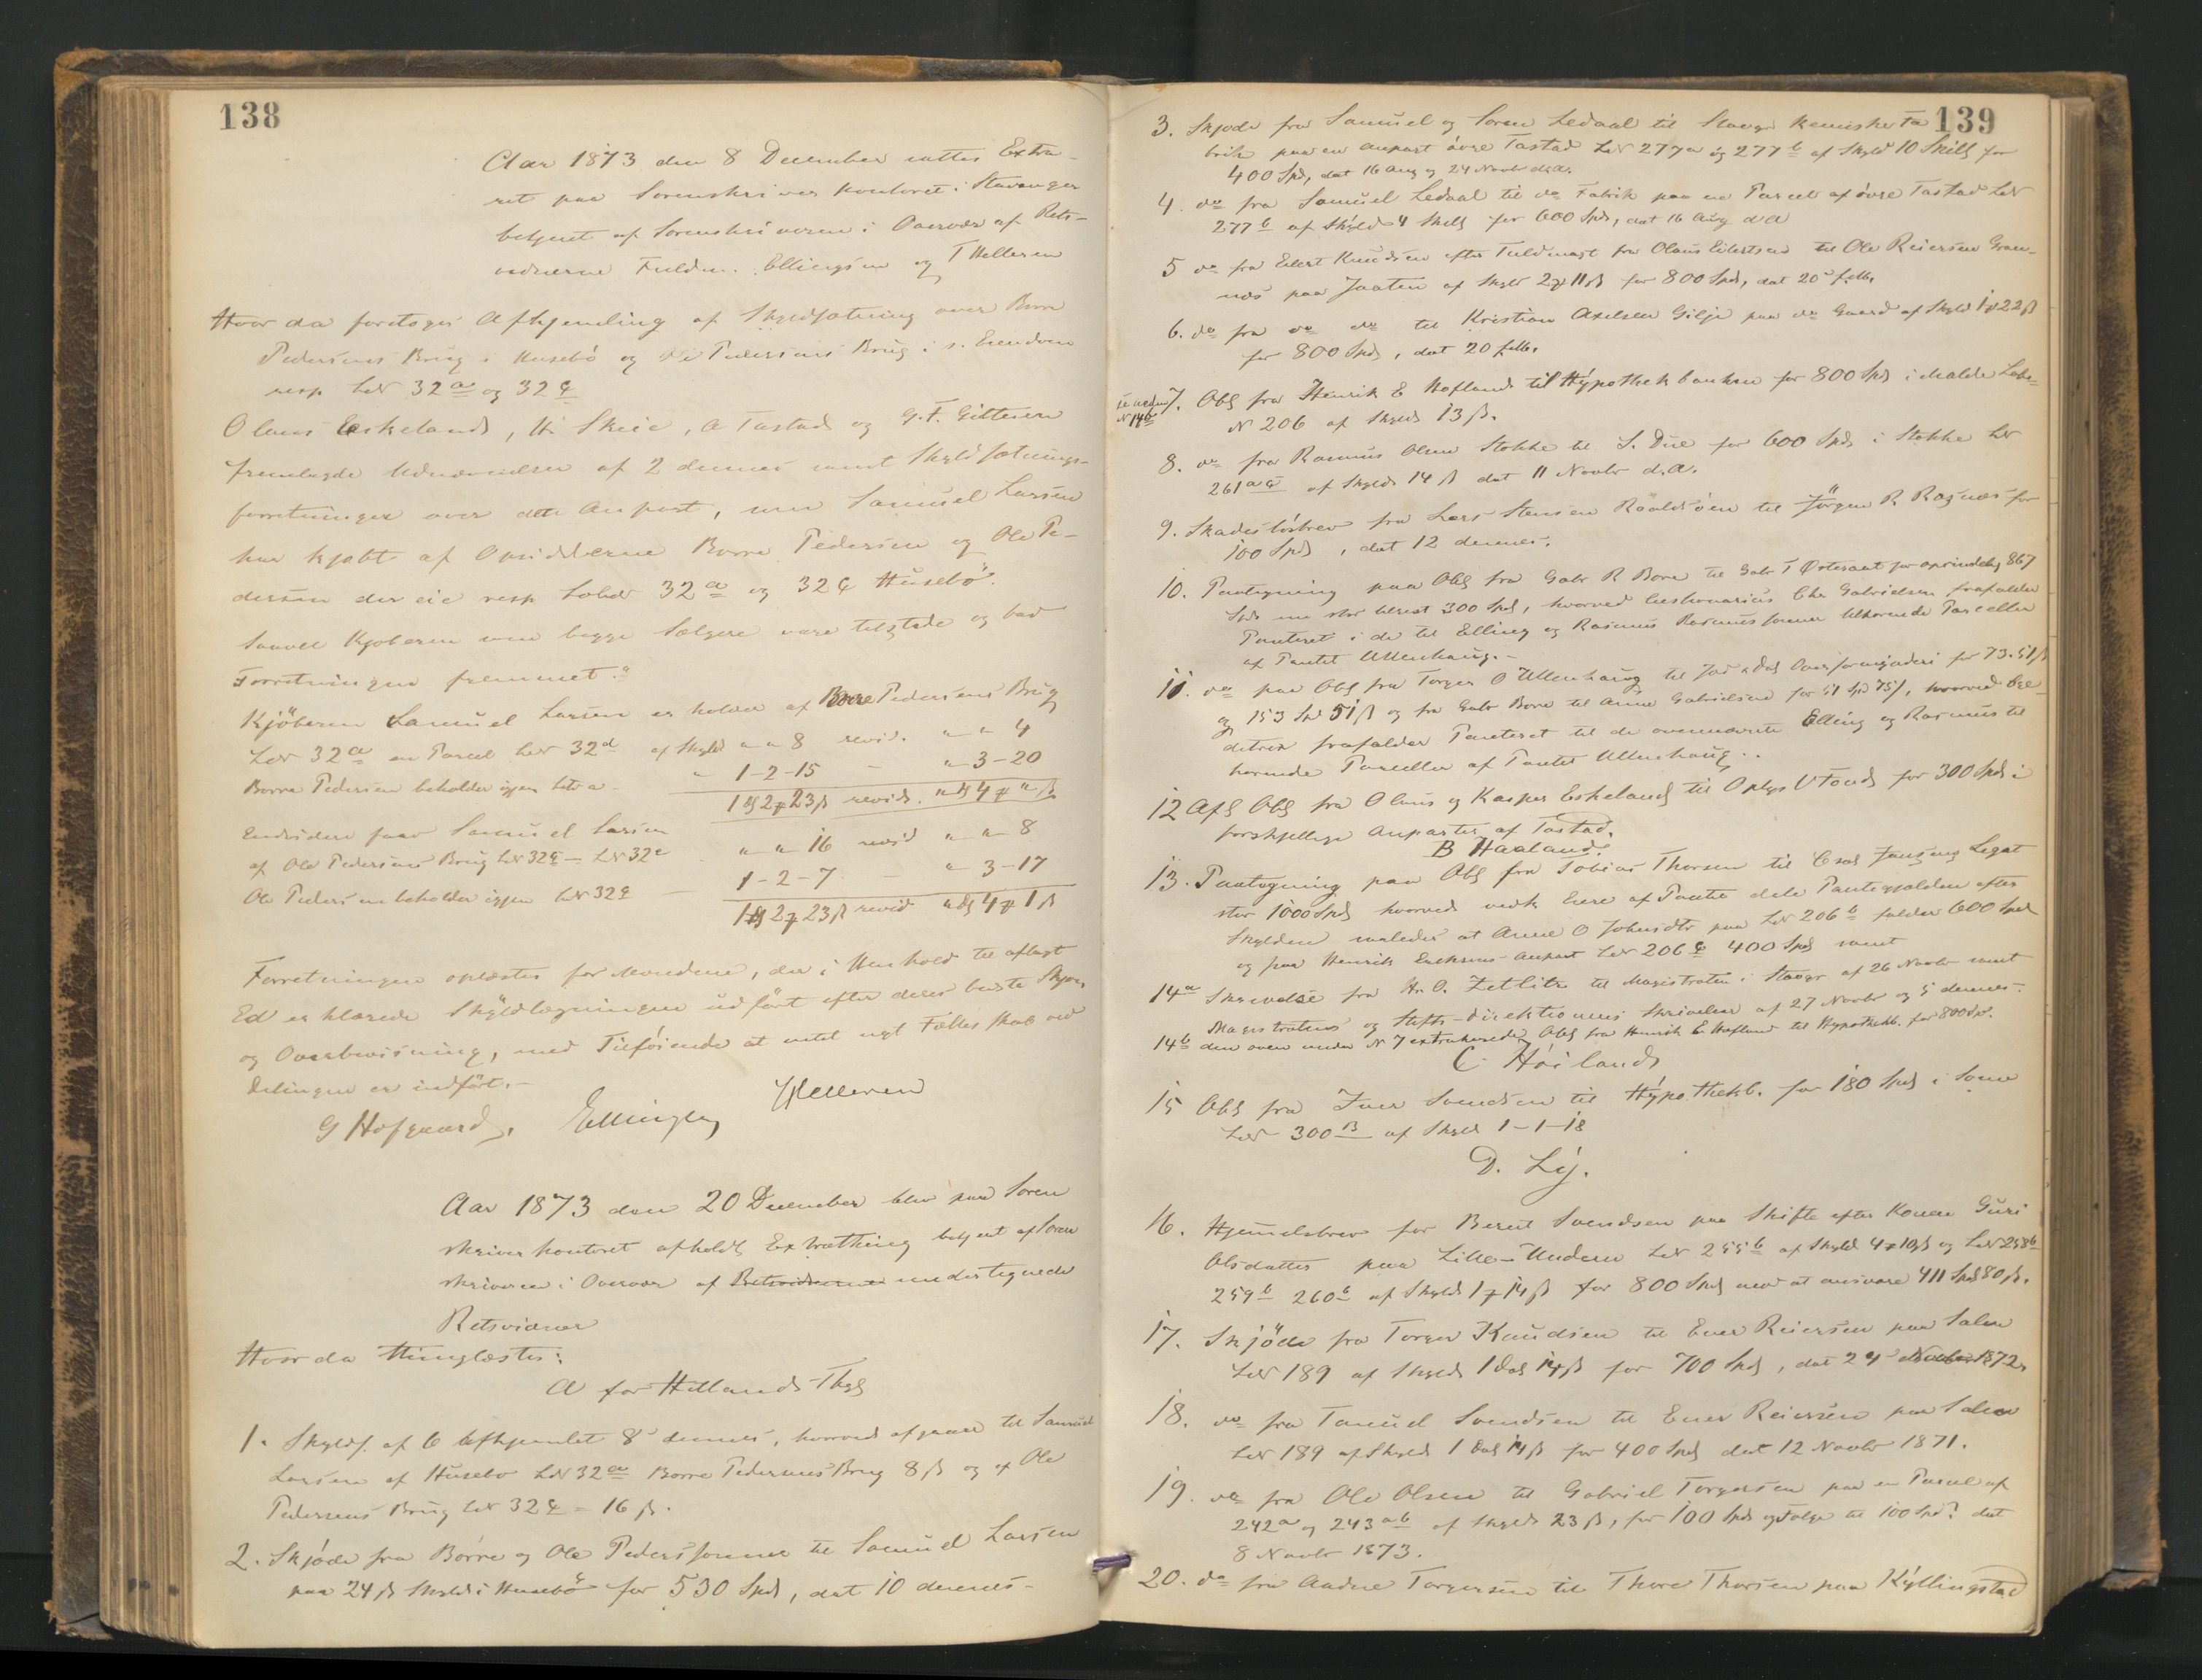 138
Aar 1873 den 8 December sattes Extra-
ret paa Sorenskriver kontoret i Stavanger
betjent af Sorenskriveren i Overvær af Rets-
vidnerne Fuldm. Ellingsen og T Helleren
Hvor da foretoges Afhjemling af Skyldsætning over Borre
Pedersens Brug i Husebö og Ole Pedersens Brug i s. Eiendom
resp Lnr 32a og 32c
Olaus Eskeland, H. Skeie, A Tastad og G. F. Gittesen
fremlagde Udnævnelse af 2 dennes samt Skyldsætnings-
forretninger over den Anpart, som Samuel Larsen
har kjøbt af Opsidderne Borre Pedersen og Ole Pe-
dersen der eie resp Lobnr 32a og 32c Husebö.
Saavel Kjøberen som begge Sælgere vare tilstede og bad
Forretningen fremmet.
Kjöberen Samuel Larsen er holder af Borre Pedersens Brug
Lnr 32a en Parcel Lnr 32d af Skyld " " 8 revid. " " 4
Borre Pedersen beholder igjen Litr a - " 1-2-15 - " 3-20
1 D 2 # 23 ß revid. " D 4 # " ß
Endvidere faar Samuel Larsen
af Ole Pedersens Brug Lnr 32c - Lnr 32e " " 16 revid " " 8
Ole Pedersen beholder igjen Lnr 32c - 1-2-7 - " 3-17
1 D 2 # 23 ß revid " D 4 # 1 ß
Forretningen oplæstes for Mændene, der i Henhold til aflagt
Ed erklærede Skyldlægningen udfört efter deres bedste Skjøn
og Overbevisning, med Tilföiende at intet nyt Fællesskab ved
Delingen er indfört.-
G Hofgaard. Ellingsen THelleren
Aar 1873 den 20 December blev paa Soren
skriver kontoret afholdt Extrathing betjent af Soren
skriveren i Overvær af Retsvidnerne undertegnede
Retsvidner
Hvor da Thinglæstes:
A for Hetlands Thgl
1. Skyldf. af 6 afhjemlet 8 dennes, hvorved afgaar til Samuel
Larsen af Husebo Lnr 32a Borre Pedersens Brug 8 ß og af Ole
Pedersens Brug Lnr 32c = 16 ß.
2. Skjöde fra Borre og Ole Pederssønner til Samuel Larsen
paa 24 ß Skyld i Husebö for 530 Spd, dat 10 dennes-
139
3. Skjøde fra Samuel og Soren Ledaal til Stavgr kemiske Fa
brik paa en Anpart övre Tastad Lnr 277a og 277b af Skyld 10 Skill for
400 Spd, dat 16 Aug og 24 Novbr d.A.
4. do fra Samuel Ledaal til do Fabrik paa en Parcel af övre Tastad Lnr
277b af Skyld 4 Skill for 600 Spd, dat 16 Aug d A
5 do fra Eilert Knudsen efter Fuldmagt fra Olaus Eilertsen til Ole Reiersen Gron-
nes paa Jaaten af Skyld 2 # 11 ß for 800 Spd, dat 20
6. do fra do do til Kristian Axelsen Gilje paa do Gaard af Skyld 1 # 22 ß
for 800 Spd, dat 20
se neden N 14b
7. Obl fra Henrik E Hafland til Hypothek banken for 800 Spd i Malde Löbe-
N 206 af Skyld 13 ß.
8. do fra Rasmus Olsen Stokke til S. Due for 600 Spd i Stokke Lnr
261 a c af Skyld 14 ß dat 11 Novbr d.A.
9. Skadeslösbrev fra Lars Stensen Roaldsöen til Jörgen R. Ragnæs for
100 Spd, dat 12 dennes.
10. Paategning paa Obl fra Gabr R Bore til Gabr T Østeraat for oprindelig 867
Spd nu stor tilrest 300 Spd, hvorved Cessionarius Chr Gabrielsen frafalder
Panteret i de til Elling og Rasmus Rasmussønner tilhørende Parceller
af Pantet Ullenhaug.-
11. do paa Obl fra Torger O Ullenhaug til Jæd. & Dal. Overformynderi for 73.51 ß
og 153 Spd 51 ß og fra Gabr Bore til Anne Gabrielsen for 51 Spd 75 ß, hvorved Cre-
ditrix frafalder Panteret til de ovennævnte Elling og Rasmus til
hørende Parceller af Pantet Ullenhaug.
12 Afl Obl fra Olaus og Kasper Eskeland til Oplys V Fond for 300 Spd i
forskjellige Anparter af Tastad.
B Haaland.
13. Paategning paa Obl fra Tobias Thorsen til Legat
stor 1000 Spd hvorved vedk Eiere af Pantet dele Pantegjælden efter
Skylden saaledes at Anne O Johnsdtr paa Lnr 206b falder 600 Spd
og paa Henrik Eriksens Anpart Lnr 206c 400 Spd samt
14a Skrivelse fra Hr O. Zetlitz til Magistraten i Stavgr af 26 Novbr samt
Magistratens og Stifts-direktionens Skrivelser af 27 Novbr og 5 dennes.
14b den oven under N 7 extraherede Obl fra Henrik E Hafland til Hypothekb. for 800 Spd.
C Höiland
15 Obl fra Iver Svendsen til Hypothekb. for 180 Spd i Some
Lnr 300 B af Skyld 1-1-18
D. Ly.
16. Hjemmelsbrev for Berent Svendsen paa Skifte efter Konen Guri
Olsdatter paa Lille-Undem Lnr 255b af Skyld 4 # 10 ß og Lnr 258b
259b 260b af Skyld 1 # 14 ß for 800 Spd mod at ansvare 411 Spd 80 ß.
17. Skjöde fra Torger Knudsen til Ener Reiersen paa Salen
Lnr 189 af Skyld 1 Dal 14 ß for 700 Spd, dat 24 Novbr 1872.
18. do fra Tanuel Svendsen til Ener Reiersen paa Salen
Lnr 189 af Skyld 1 Dal 14 ß for 400 Spd dat 12 Novbr 1871.
19. do fra Ole Olsen til Gabriel Torgersen paa en Parcel af
242a og 243ab af Skyld 23 ß, for 100 Spd og Følge til 100 Spd? dat
8 Novbr 1873.
20. do fra Aadne Torgersen til Thore Thorsen paa Kyllingstad